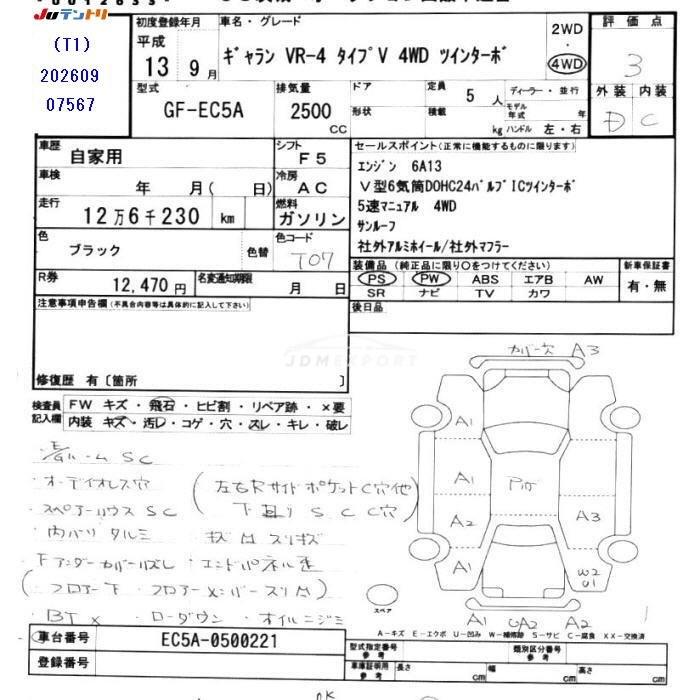 JUテントリ
(T1)
202609
07567
初度登録年月
平成
13 9月
車名・グレード
ギャラン VR-4 タイプV 4WD ツインターボ
2WD
・
4WD
評価点
3
型式
GF-EC5A
排気量
2500
CC
ドア
形状
定員
5人
積載
kg
ディーラー・並行
モデル年式 年
ハンドル 左・右
外装 内装
D C
車歴
自家用
シフト
F5
車検
年 月( 日)
冷房
AC
走行
12万6千230 km
燃料
ガソリン
色
ブラック
色替
色コード
T07
R券
12,470円
名変通知期限
月 日
セールスポイント(正常に機能するものに限ります)
エンジン 6A13
V型6気筒DOHC24バルブICツインターボ
5速マニュアル 4WD
サンルーフ
社外アルミホイール/社外マフラー
装備品(純正品に限り○をつけてください)
PS PW ABS エアB AW
SR ナビ TV カワ
新車保証書
有・無
後日品
注意事項申告欄(不具合内容等は具体的に記入して下さい)
JDMEXPORT
修復歴 有〔箇所 〕
検査員記入欄
FW キズ・飛石・ヒビ割・リペア跡・×要
内装 キズ・汚レ・コゲ・穴・スレ・キレ・破レ
ルーム SC
オーディオレス穴
左右Rサイドポケット C穴他
スペアーハウス SC
下回り SC C穴
内バリ タルミ
キズ M スリキズ
下アンダーカバーハズレ・エンドパネル歪
(フロアー下・フロアーメンバースリM)
BT× ・ローダウン・オイルニジミ
カバー穴 A3
A1
A1
A2
A1
A3
W2
U1
A1
UA2
A2
スペア
A-キズ E-エクボ U-凹み W-補修跡 S-サビ C-腐食 XX-交換済
車台番号
EC5A-0500221
登録番号
型式指定番号
参考
類別区分番号
参考
車庫証明用
参考
長さ cm
幅 cm
高さ cm
OK